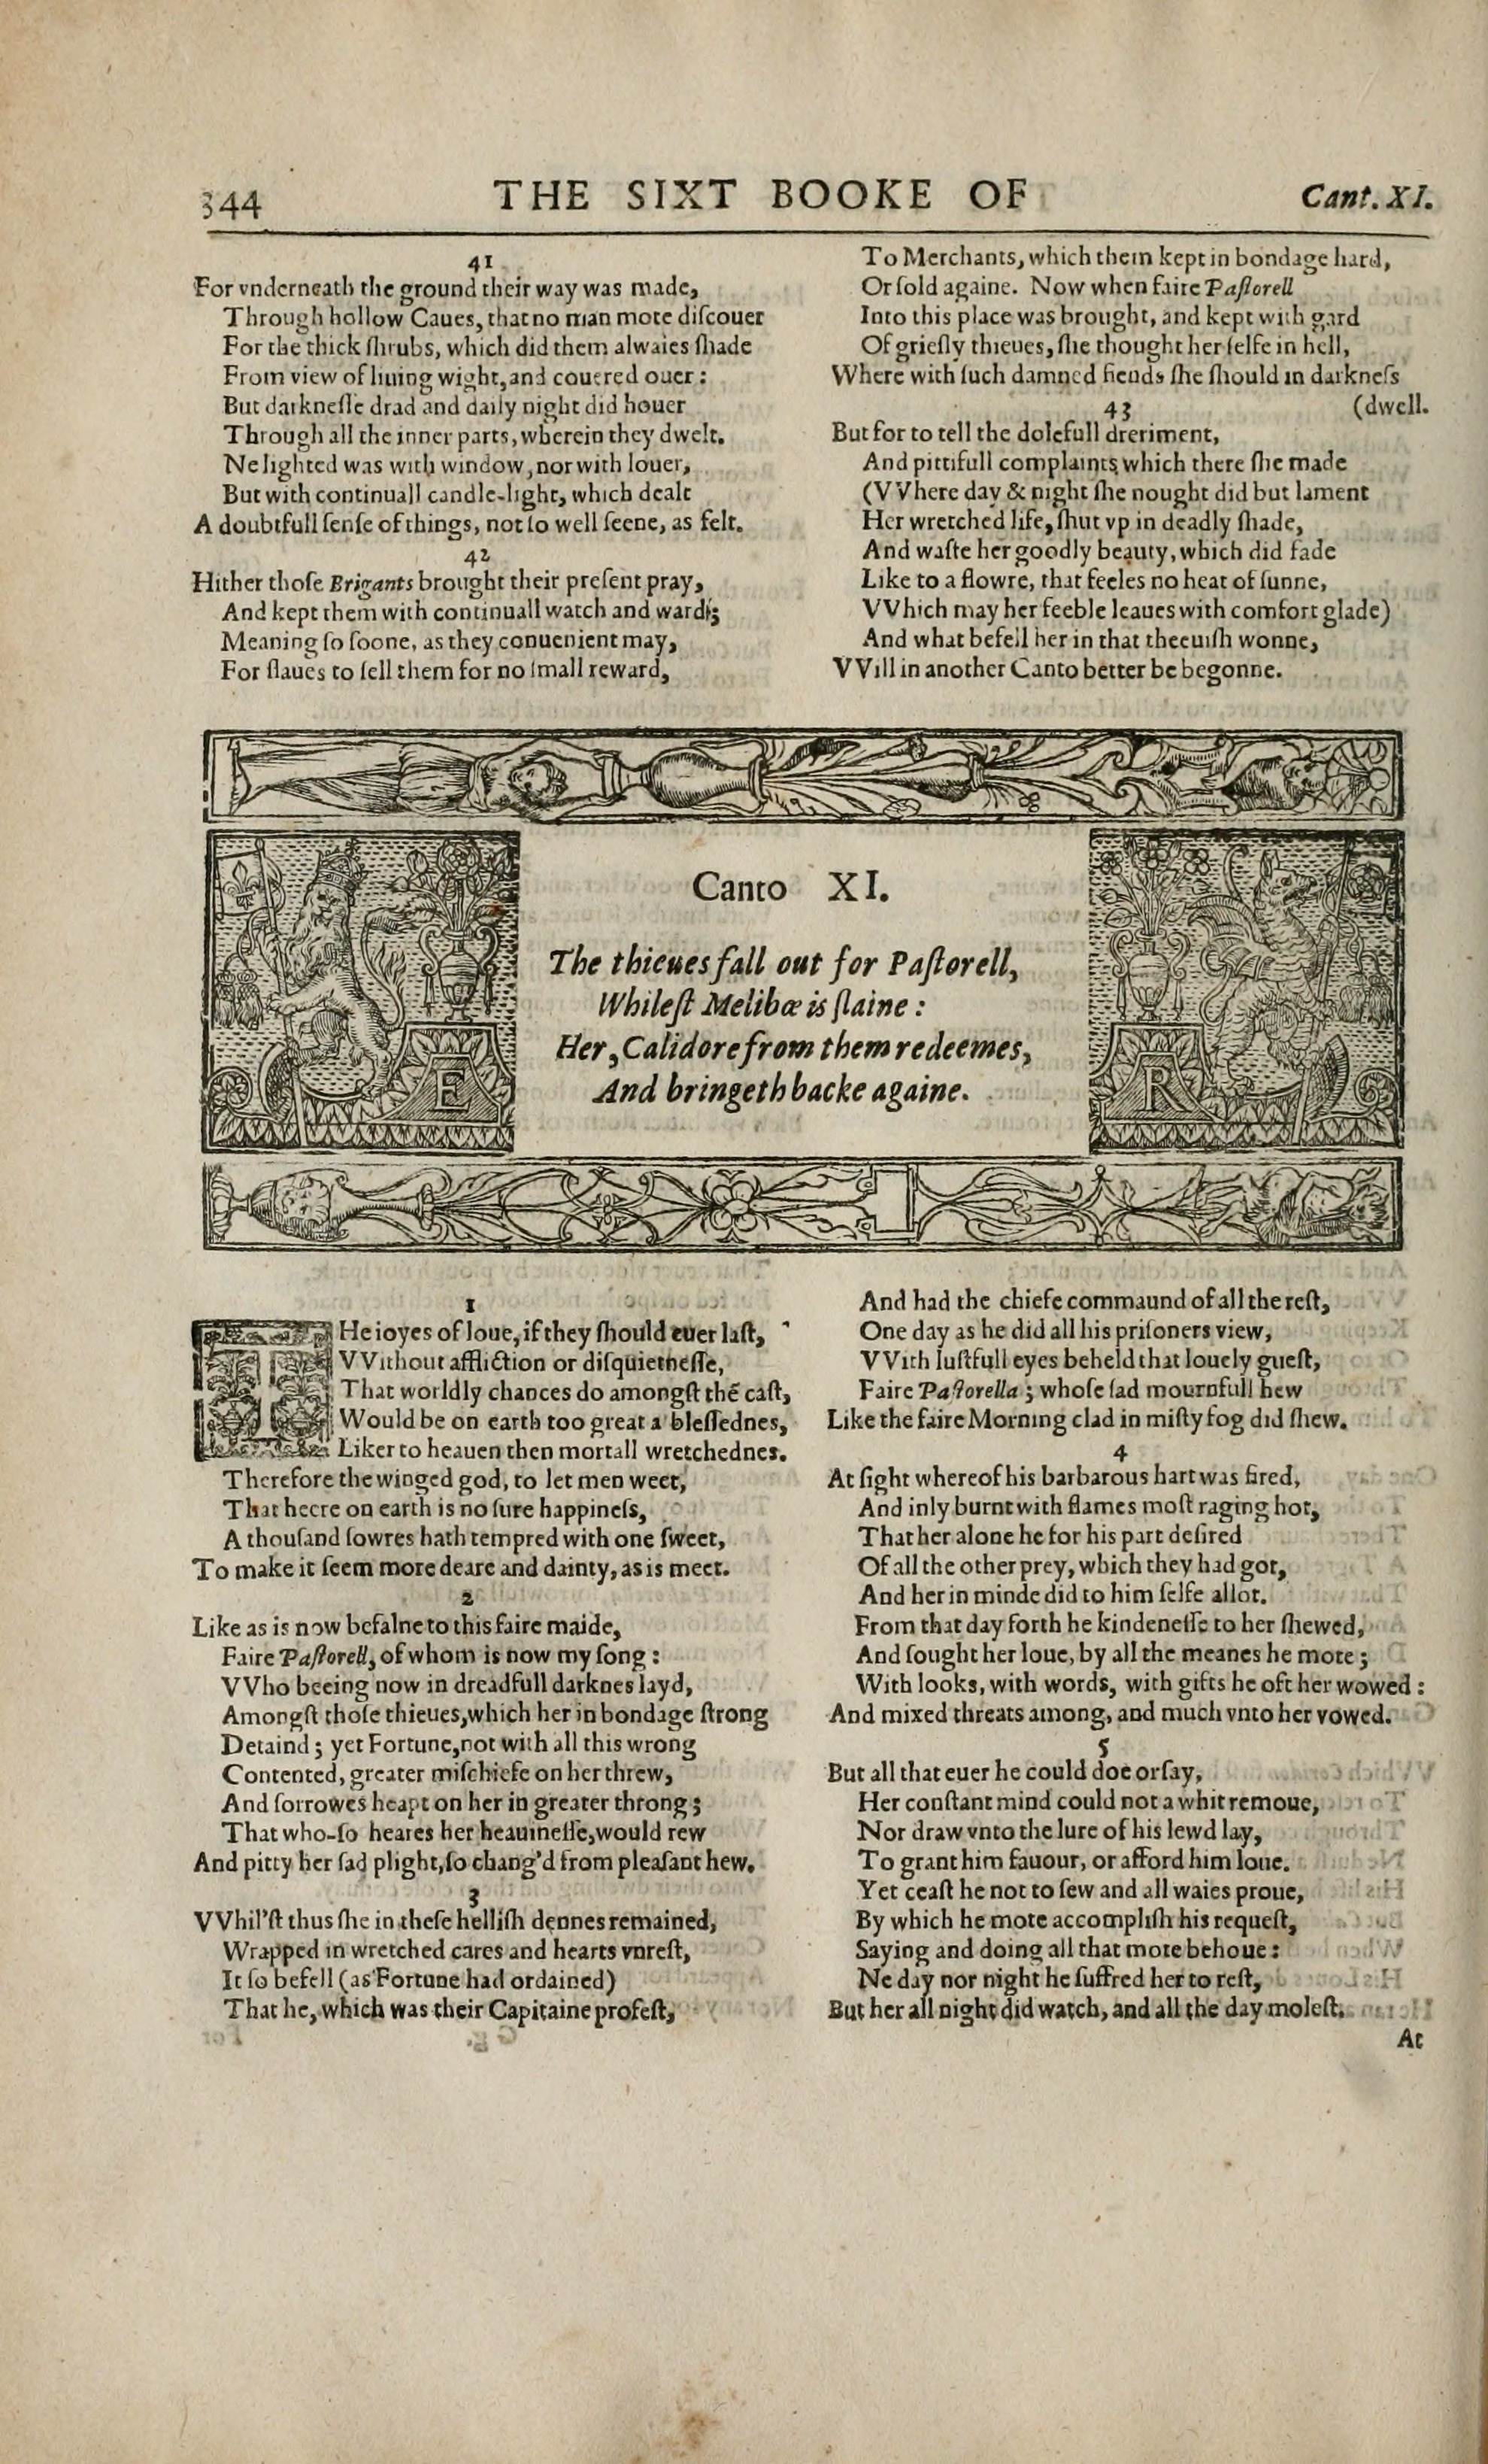 344 THE SIXT BOOKE OF Cant. XI.
41
For vnderneath the ground their way was made,
Through hollow Caues, that no man mote diſcouer
For the thick ſhrubs, which did them alwaies ſhade
From view of liuing wight, and couered ouer:
But darkneſſe drad and daily night did houer
Through all the inner parts, wherein they dwelt.
Ne lighted was with window, nor with louer,
But with continuall candle-light, which dealt
A doubtfull ſenſe of things, not ſo well ſeene, as felt.
42
Hither thoſe Brigants brought their preſent pray,
And kept them with continuall watch and ward;
Meaning ſo ſoone, as they conuenient may,
For ſlaues to ſell them for no ſmall reward,
To Merchants, which them kept in bondage hard,
Or ſold againe. Now when faire Paſtorell
Into this place was brought, and kept with gard
Of grieſly thieues, ſhe thought her ſelfe in hell,
Where with ſuch damned fiends ſhe ſhould in darkneſs
43 (dwell.
But for to tell the dolefull dreriment,
And pittifull complaints which there ſhe made
(VVhere day & night ſhe nought did but lament
Her wretched life, ſhut vp in deadly ſhade,
And waſte her goodly beauty, which did fade
Like to a flowre, that feeles no heat of ſunne,
VVhich may her feeble leaues with comfort glade)
And what befell her in that theeuiſh wonne,
VVill in another Canto better be begonne.
Canto XI.
The thieues fall out for Paſtorell,
Whileſt Melibœ is ſlaine:
Her, Calidore from them redeemes,
And bringeth backe againe.
E
R
1
THe ioyes of loue, if they ſhould euer laſt,
VVithout affliction or diſquietneſſe,
That worldly chances do amongſt thē caſt,
Would be on earth too great a bleſſednes,
Liker to heauen then mortall wretchednes.
Therefore the winged god, to let men weet,
That heere on earth is no ſure happineſs,
A thouſand ſowres hath tempred with one ſweet,
To make it ſeem more deare and dainty, as is meet.
2
Like as is now befalne to this faire maide,
Faire Paſtorell, of whom is now my ſong:
VVho beeing now in dreadfull darknes layd,
Amongſt thoſe thieues, which her in bondage ſtrong
Detaind; yet Fortune, not with all this wrong
Contented, greater miſchiefe on her threw,
And ſorrowes heapt on her in greater throng;
That who-ſo heares her heauineſſe, would rew
And pitty her ſad plight, ſo chang'd from pleaſant hew.
3
VVhil'ſt thus ſhe in theſe helliſh dennes remained,
Wrapped in wretched cares and hearts vnreſt,
It ſo befell (as Fortune had ordained)
That he, which was their Capitaine profeſt,
And had the chiefe commaund of all the reſt,
One day as he did all his priſoners view,
VVith luſtfull eyes beheld that louely gueſt,
Faire Paſtorella; whoſe ſad mournfull hew
Like the faire Morning clad in miſty fog did ſhew.
4
At ſight whereof his barbarous hart was fired,
And inly burnt with flames moſt raging hot,
That her alone he for his part deſired
Of all the other prey, which they had got,
And her in minde did to him ſelfe allot.
From that day forth he kindeneſſe to her ſhewed,
And ſought her loue, by all the meanes he mote;
With looks, with words, with gifts he oft her wowed:
And mixed threats among, and much vnto her vowed.
5
But all that euer he could doe or ſay,
Her conſtant mind could not a whit remoue,
Nor draw vnto the lure of his lewd lay,
To grant him fauour, or afford him loue.
Yet ceaſt he not to ſew and all waies proue,
By which he mote accompliſh his requeſt,
Saying and doing all that mote behoue:
Ne day nor night he ſuffred her to reſt,
But her all night did watch, and all the day moleſt.
At